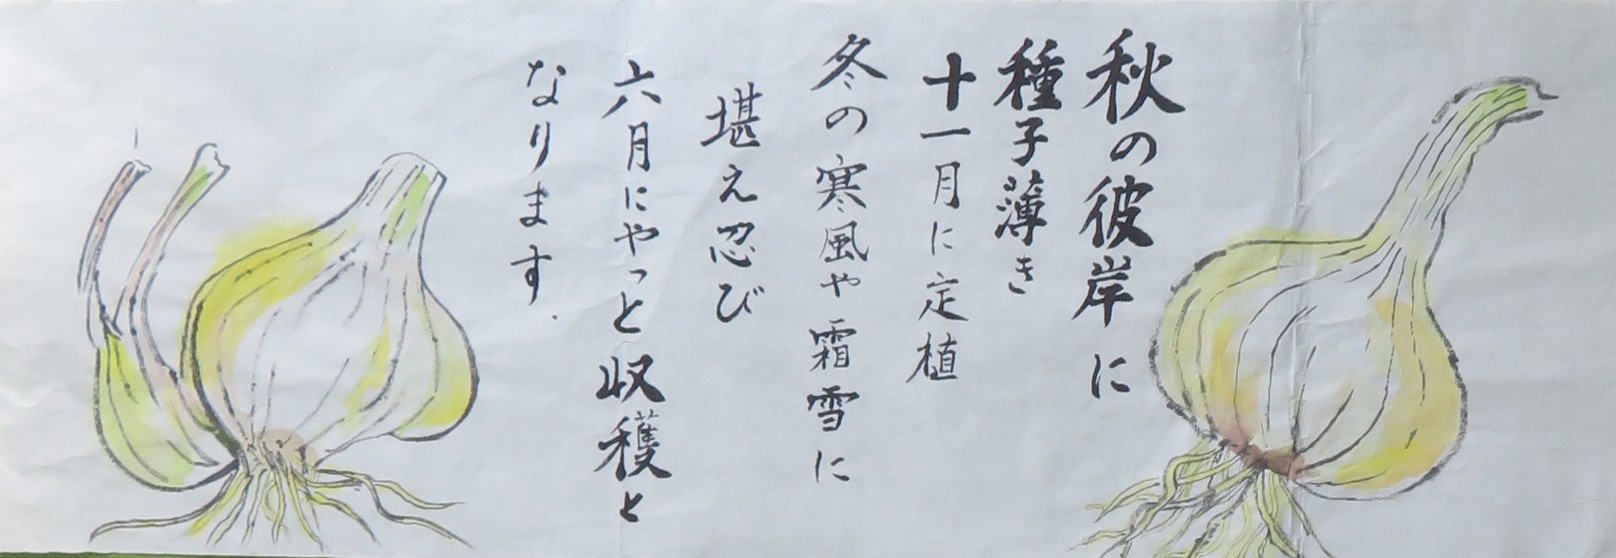 秋の彼岸に
種子薄き
十一月に定植
冬の寒風や霜雪に
堪え忍び
六月にやっと収穫と
なります.